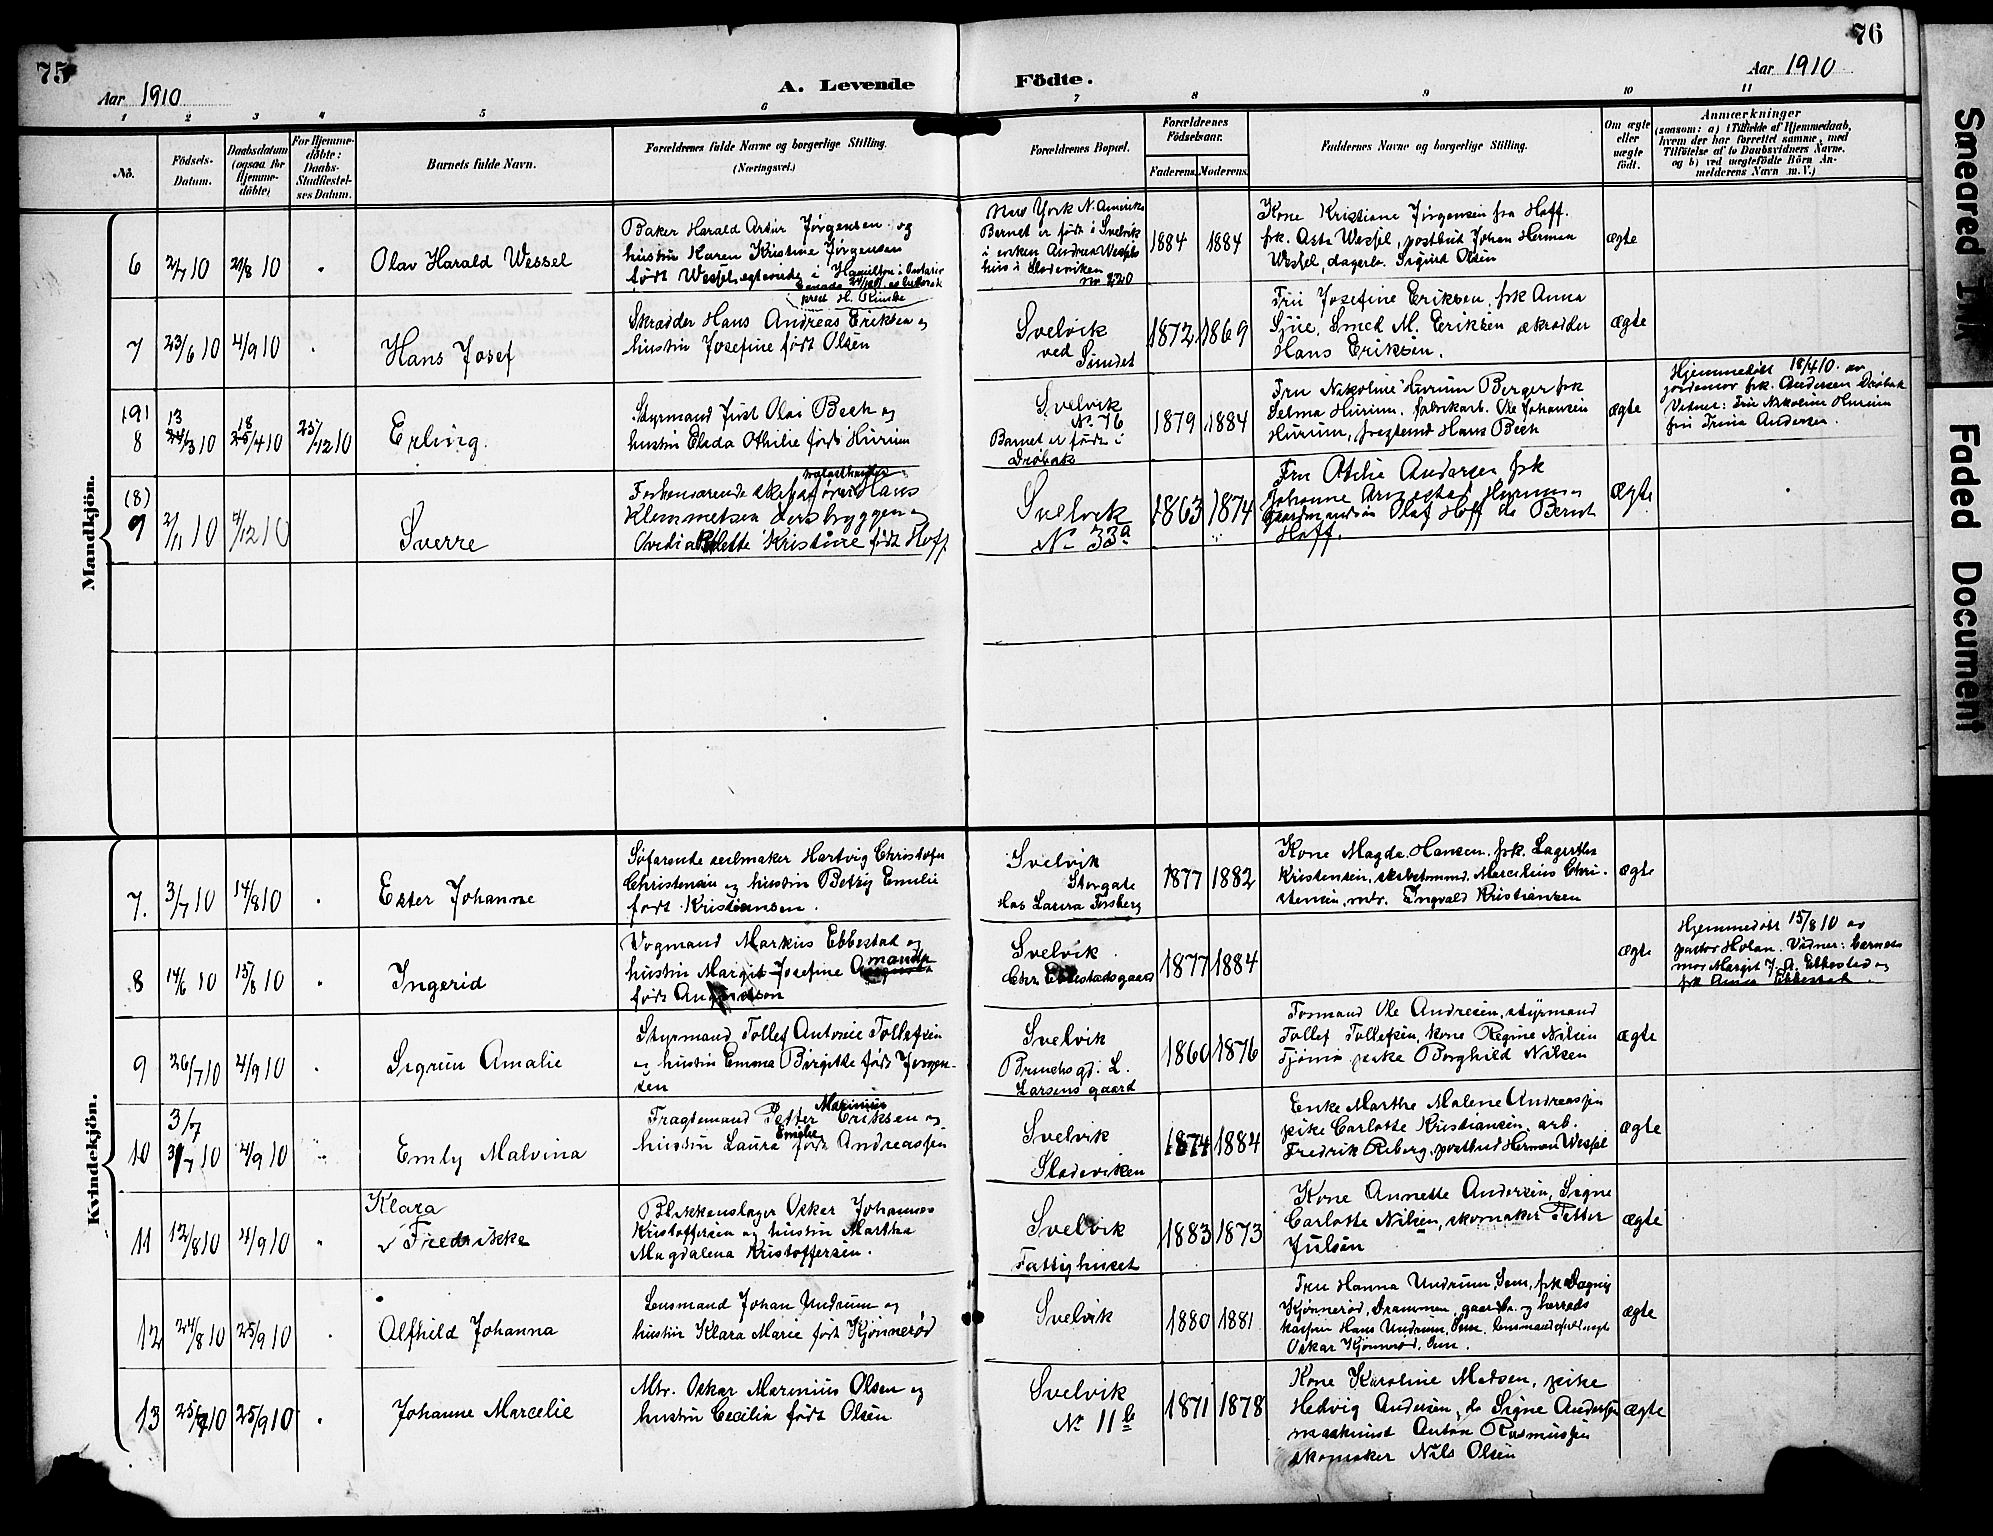 75
Aar 1910
A. Levende
Födte.
76
Aar 1910
1 2 3 4 5 6 7 8 9 10 11
No.
Födsels-
Datum.
Daabsdatum
(ogsaa for
Hjemme-
döbte)
For Hjemme-
döbte:
Daabs-
Stadfæstel-
ses Datum.
Barnets fulde Navn.
Forældrenes fulde Navne og borgerlige Stilling.
(Næringsvei.)
Forældrenes Bopæl.
Forældrenes
Födselsaar.
Faderens.
Moderens.
Faddernes Navne og borgerlige Stilling.
Om ægte
eller
uægte
födt.
Anmærkninger
(saasom: a) i Tilfælde af Hjemmedaab,
hvem der har forrettet samme, med
Tilföielse af to Daabsvidners Navne,
og b) ved uægtefödte Börn An-
melderens Navn m. V.)
Mandkjön.
6
2/7 10
21/8 10
Olav Harald Wessel
Baker Harald Artur Jørgensen og
hustru Karen Kristine Jørgensen
født Wessel, egteviede i Hamilton i Ontario
prest H.
New York N. Amerika
Barnet er født i Svelvik
i enken Andrea Wessels
hus i Sladeviken
no 220
1884
1884
Kone Kristiane Jørgensen fra Hoff.
frk. Asta Wessel, postbud Johan Herman
Wessel, dagarb. Sigurd Olsen
ægte
7
23/6 10
4/9 10
Hans Josef
Skrædder Hans Andreas Eriksen og
hustru Josefine født Olsen
Svelvik
ved
Sundet
1872
1869
Fru Josefine Eriksen, frk Anna
Sjue, Smed M. Eriksen skrædder
Hans Eriksen.
ægte
(9)
8
13
24/3 10
18
25/4 10
25/12 10
Erling.
Styrmand Just Olai Bech og
hustru Elida Othilie født Hurum
Svelvik
No 76
Barnet er født i
Drøbak
1879
1884
Fru Nikoline Hurum Berger frk
Selma Hurum, fabrikarb. Ole Johansen
Hurum, fragtemd Hans Bech
ægte
Hjemmedøbt 18/4 10. av
jordemor frk. Andersen Drøbak
Vidner: Fru Nikoline Hurum
fru Trina Andersen.
(8)
9
2/11 10
4/12 10
Sverre
Forhenværende skibsfører Hans
Klemmetsen Lersbryggen og
Kristine født Hoff
Svelvik
No 33a
1863
1874
Fru Otilie Andersen frk
Johanne
Olaf Hoff do Bernt
Hoff.
ægte
Kvindekjön.
7.
3/7 10
14/8 10
Ester Johanne
Søfarende seilmaker Hartvig Christofer
Christensen og hustru Betzy Emilie
født Kristiansen.
Svelvik
Storgate
Hos Laura Tinsberg
1877
1882
Kone Magda Hansen, frk. Lagertha
Kristensen, skibstømmd. Marcelius Chri-
stensen, mtr. Ingvald Kristiansen
ægte
8
14/6 10
15/8 10
Ingerid
Vogmand Markus Ebbestad og
hustru Margit Josefine Amanda
født Anderson
Svelvik
Chr. Ebbestadsgaard
1877
1884
ægte
Hjemmedøbt 15/8 10 av
pastor Holan. Vidner: barnets
mor Margit J. A. Ebbestad og
frk Anna Ebbestad.
9
26/7 10
4/9 10
Sigrun Amalie
Styrmand Tollef Antonie Tollefsen
og hustru Emma Birgitte født Jørgen-
sen
Svelvik
Bruchsgd: L.
Larsens gaard
1860
1876
Formand Ole Andresen, styrmand
Tollef Tollefsen, kone Regine Nilsen
Tjømø, pike Borghild Nilsen
ægte
10
3/7
31/7 10
4/9 10
Emly Malvina
Marinius
Fragtemand Petter Eriksen og
Emelie
hustru Laura født Andreassen
Svelvik
Sladeviken
1874
1884
Enke Marthe Malene Andreassen
pike Carlotte Kristiansen, arb.
Fredrik Reberg, postbud Herman Wessel
ægte
11
12/8 10
4/9 10
Klara
Fredrikke
Blikkenslager Oskar Johannes
Kristoffersen og hustru Martha
Magdalena Kristoffersen.
Svelvik
Fattighuset
1883
1873
Kone Annette Andersen, Signe
Carlotte Nilsen, skomaker Petter
Julsen
ægte
12
24/8 10
25/9 10
Alfhild Johanna
Lensmand Johan Undrum og
hustru Klara Marie født Kjønnerød
Svelvik
1880
1881
Fru Hanna Undrum, Sem, frk Dagny
Kjønnerød, Drammen, gaardbr. og herreds
kasserer Hans Undrum, Sem, lensmandsfuldmægt
Oskar Kjønnerød, Sem.
ægte
13
25/7 10
25/9 10
Johanne Marcelie
Mtr. Oskar Marinius Olsen og
hustru Cecilia født Olsen
Svelvik
No 11b
1871
1878
Kone Karoline Madsen, pike
Hedvig Andersen, do Signe Andersen
maskinist Anton Rasmussen
skomaker Nils Olsen
ægte
Smeared Ink
Faded Document